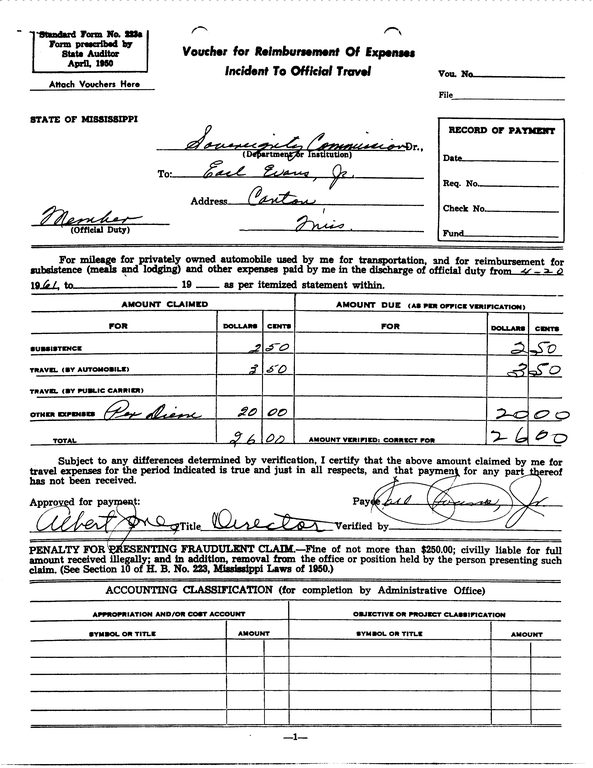 Standard Form No. 223a
Form prescribed by
State Auditor
April, 1950
Attach Vouchers Here
Voucher for Reimbursement Of Expenses
Incident To Official Travel
Vou. No.
File
STATE OF MISSISSIPPI
Sovereignty Commission Dr.,
(Department or Institution)
To: Earl Evans, Jr.
Address Canton,
Miss.
Member
(Official Duty)
RECORD OF PAYMENT
Date
Req. No.
Check No.
Fund
For mileage for privately owned automobile used by me for transportation, and for reimbursement for
subsistence (meals and lodging) and other expenses paid by me in the discharge of official duty from 4-20
1961, to 19 as per itemized statement within.
AMOUNT CLAIMED AMOUNT DUE (AS PER OFFICE VERIFICATION)
FOR DOLLARS CENTS FOR DOLLARS CENTS
SUBSISTENCE 2 50 2 50
TRAVEL (BY AUTOMOBILE) 3 50 3 50
TRAVEL (BY PUBLIC CARRIER)
OTHER EXPENSES Per Diem 20 00 20 00
TOTAL 26 00 AMOUNT VERIFIED: CORRECT FOR 26 00
Subject to any differences determined by verification, I certify that the above amount claimed by me for
travel expenses for the period indicated is true and just in all respects, and that payment for any part thereof
has not been received.
Approved for payment: Payee Earl Evans, Jr
Albert Jones Title Director Verified by
PENALTY FOR PRESENTING FRAUDULENT CLAIM.—Fine of not more than $250.00; civilly liable for full
amount received illegally; and in addition, removal from the office or position held by the person presenting such
claim. (See Section 10 of H. B. No. 223, Mississippi Laws of 1950.)
ACCOUNTING CLASSIFICATION (for completion by Administrative Office)
APPROPRIATION AND/OR COST ACCOUNT OBJECTIVE OR PROJECT CLASSIFICATION
SYMBOL OR TITLE AMOUNT SYMBOL OR TITLE AMOUNT
—1—